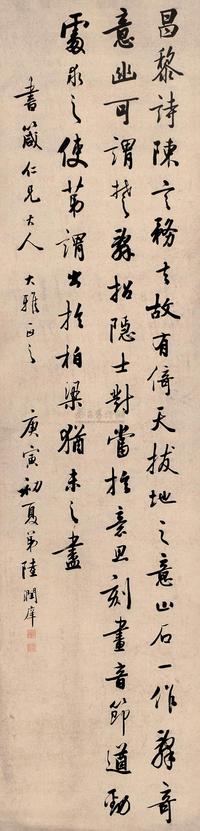 昌黎詩陳言務去故有倚天拔地之意山石一作辭奇
意幽可謂楚辭招隱士對當於意思刻畫音節遒勁
處求之使第謂出於柏梁猶未之盡
書箴仁兄大人大雅正之 庚寅初夏弟陸潤庠